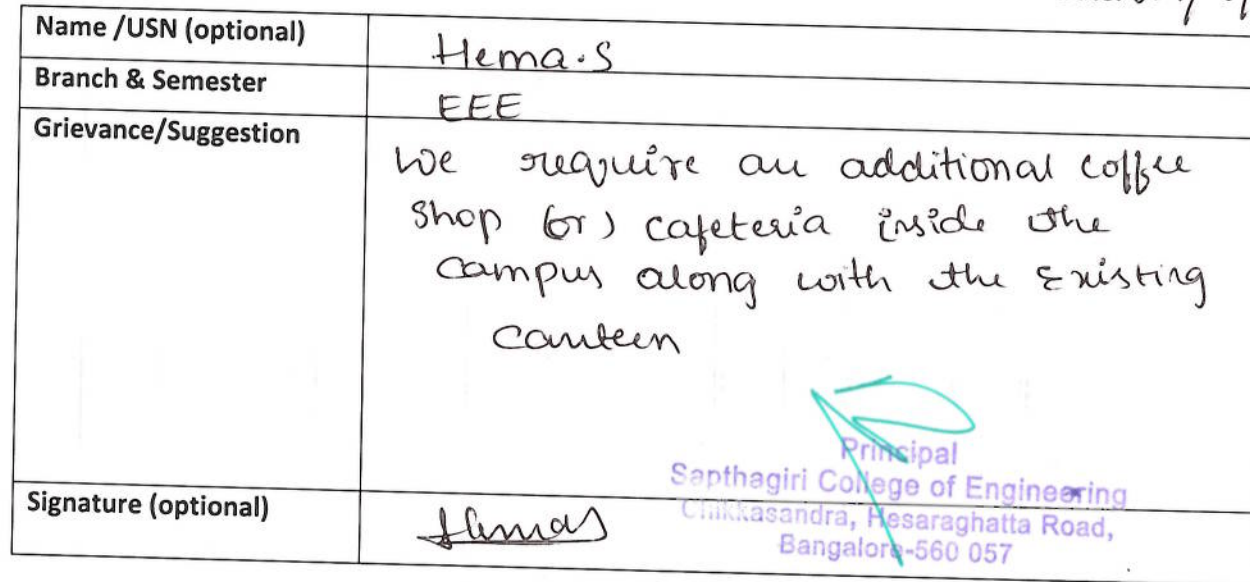 Name /USN (optional) Hema.S
Branch & Semester EEE
Grievance/Suggestion
We require an additional coffee
Shop (or) cafeteria inside the
campus along with the Existing
Canteen
Principal
Sapthagiri College of Engineering
Chikkasandra, Hesaraghatta Road,
Bangalore-560 057
Signature (optional) Hemas